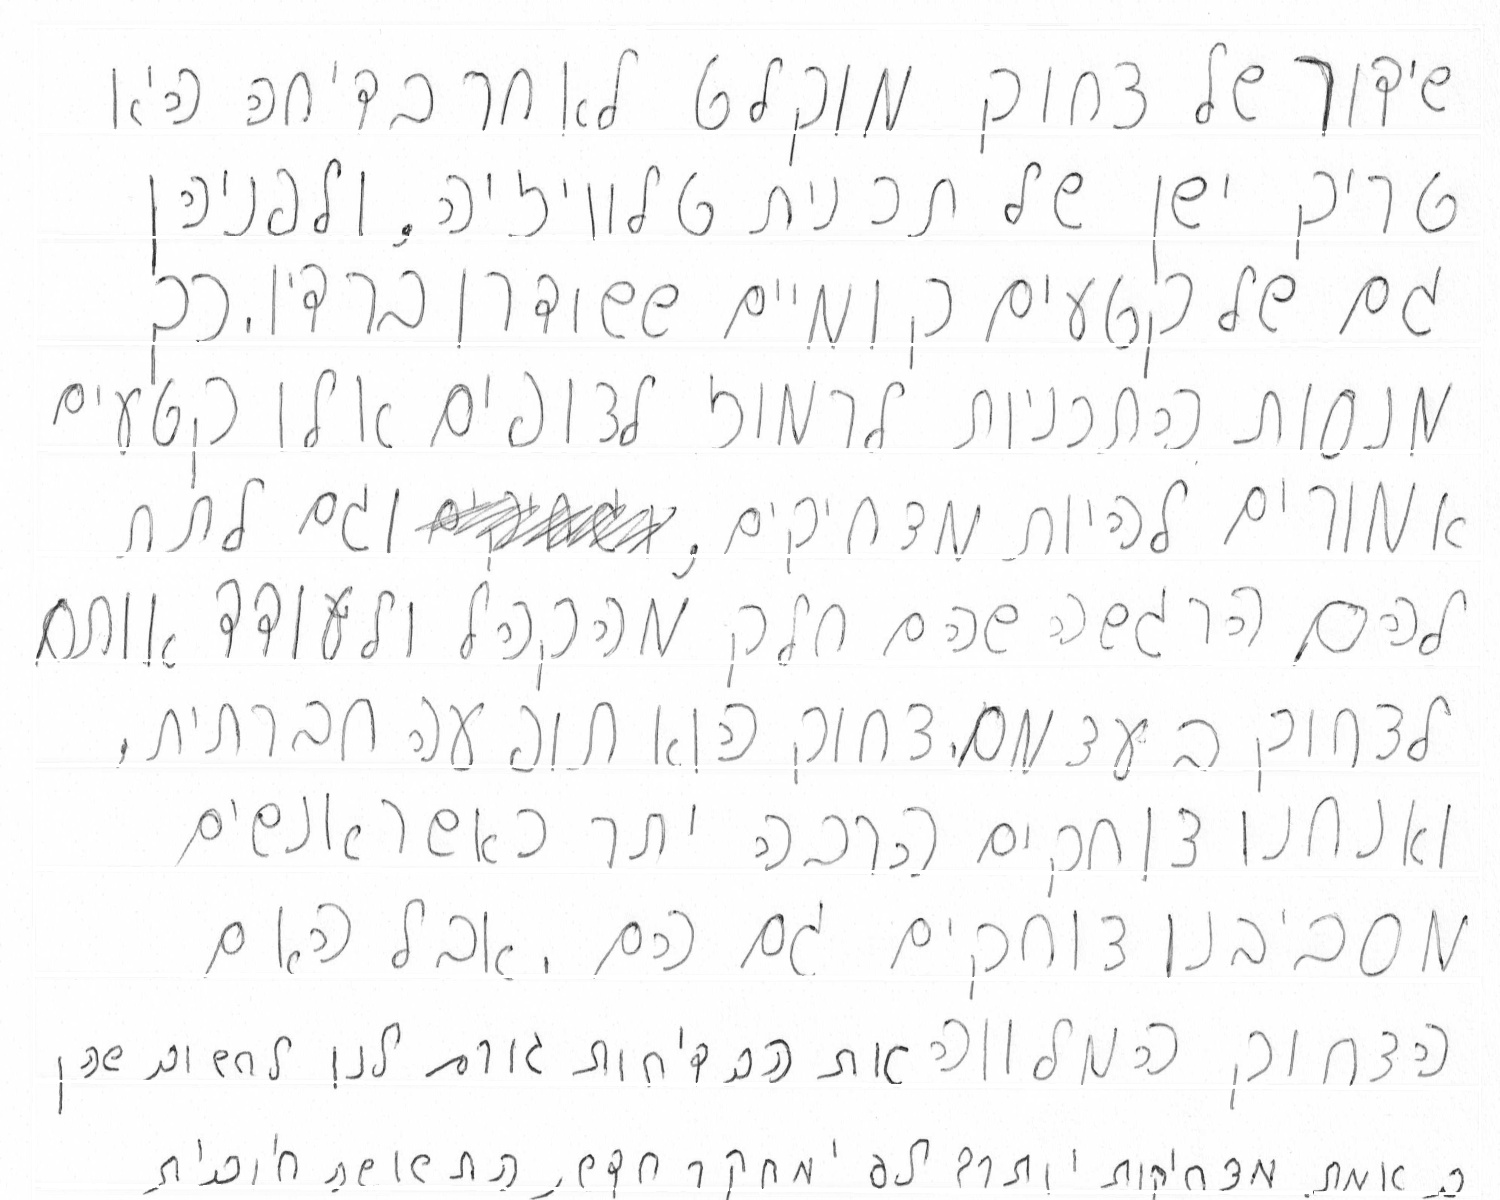 שידור של צחוק מוקלט לאחר בדיחה היא
טריק ישן של תכנית טלוויזיה, ולפניהן
גם של קטעים קומיים ששודרו ברדיו. כך
מנסות התכניות לרמוז לצופים אלו קטעים
אמורים להיות מצחיקים, וגם לתת
להם הרגשה שהם חלק מהקהל ולעודד אותם
לצחוק בעצמם. צחוק הוא תופעה חברתית,
ואנחנו צוחקים הרבה יתר כאשר אנשים
מסביבנו צוחקים גם הם. אבל האם
הצחוק המלווה את הבדיחות גורם לנו לחשוב שהן
ב אמת מצחיקות יותר? לפי מחקר חדש, התשושה חיובית